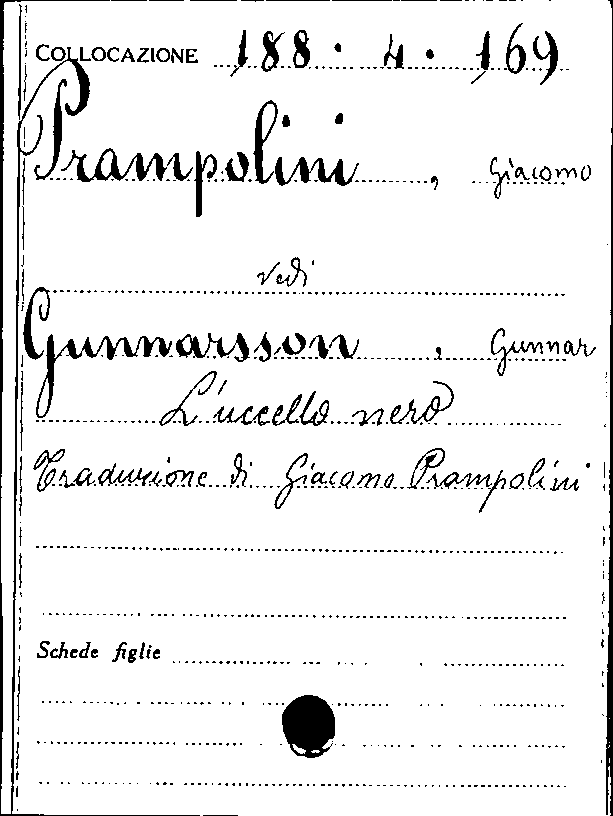 COLLOCAZIONE 188 · 4 · 169
Prampolini, Giacomo
vedi
Gunnarsson, Gunnar
L'uccello nero
Traduzione di Giacomo Prampolini
Schede figlie